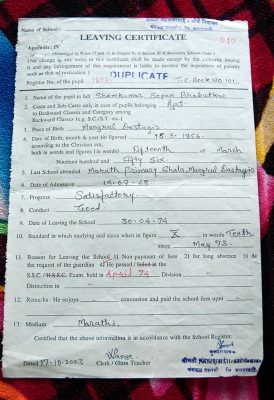 Name of School:
LEAVING CERTIFICATE
Appendix : IV
040
(Prescribed by Rules 10 and 11 in Chapter II, of Section II of Secondary Schools Code)
(No change in any entry in this certificate shall be made except by the authority issuing
it and any infringement of this requirement is liable to involve the imposition of penalty
such as that of rustication.)
DUPLICATE
Register No. of the pupil T.C. Book No. 101
1. Name of the pupil in full Shankumar Sopan Bhakatkar
2. Caste and Sub-Caste only in case of pupils belonging to
Backward Classes and Category among
Backward Classes (e.g. S.C./S.T. etc.)
3. Place of Birth Mangrul Dastagir
4. Date of Birth, month & year (in figure) 15.3.1956.
according to the Christian era,
both in words and figures (in words) Fifteenth of March
Nineteen hundred and Fifty Six
5. Last School attended Marathi Primary Shala, Mangrul Dastagir
6. Date of Admission 15-07-68
7. Progress Satisfactory
8. Conduct Good
9. Date of Leaving the School 30-04-74
10. Standard in which studying and since when in figure X in words Tenth
since May 73.
11. Reason for Leaving the School 1) Non-payment of fees 2) for long absence 3) At
the request of the guardian 4) He passed / failed in the
S.S.C./H.S.C. Exam. held in April 74 Division
Distinction in
12. Remarks He enjoys concession and paid the school fees upto
13. Medium Marathi.
Certified that the above information is in accordance with the School Register.
Dated 17-10-2003 Clerk / Class Teacher